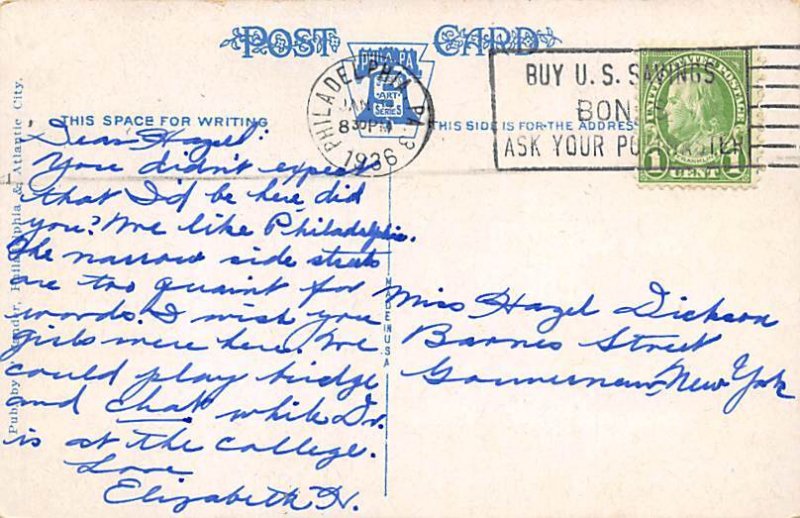 POST CARD
PHILA PA.
ART
SERIES
PHILADELPHIA, PA. 3
JAN
8 30 PM
1936
BUY U.S. SAVINGS
BON
ASK YOUR PO
FRANKLIN
1 CENT 1
THIS SPACE FOR WRITING
THIS SIDE IS FOR THE ADDRESS
Dear Hazel:
You didn't expect
that I'd be here, did
you? We like Philadelphia.
The narrow side streets
are too quaint for
words. I wish you
girls were here. We
could play bridge
and chat while Dr.
is at the college.
Love
Elizabeth H.
MADE IN USA
Miss Hazel Dickson
Barnes Street
Gouverneur, New York
Philadelphia & Atlantic City.